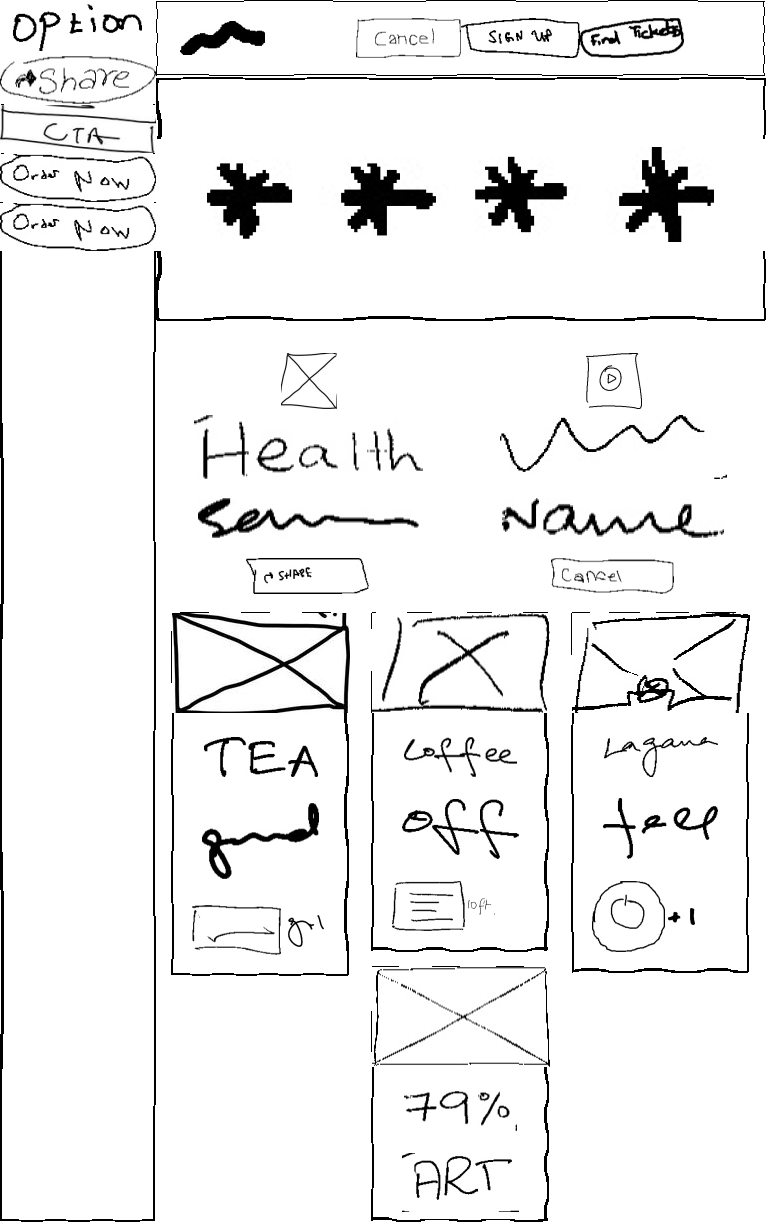 Option
Share
CTA
Order Now
Order Now
Cancel
SIGN UP
Find Tickets
Health
Name
SHARE
Cancel
TEA
good
Coffee
Off
Lagana
feel
+1
79%
ART